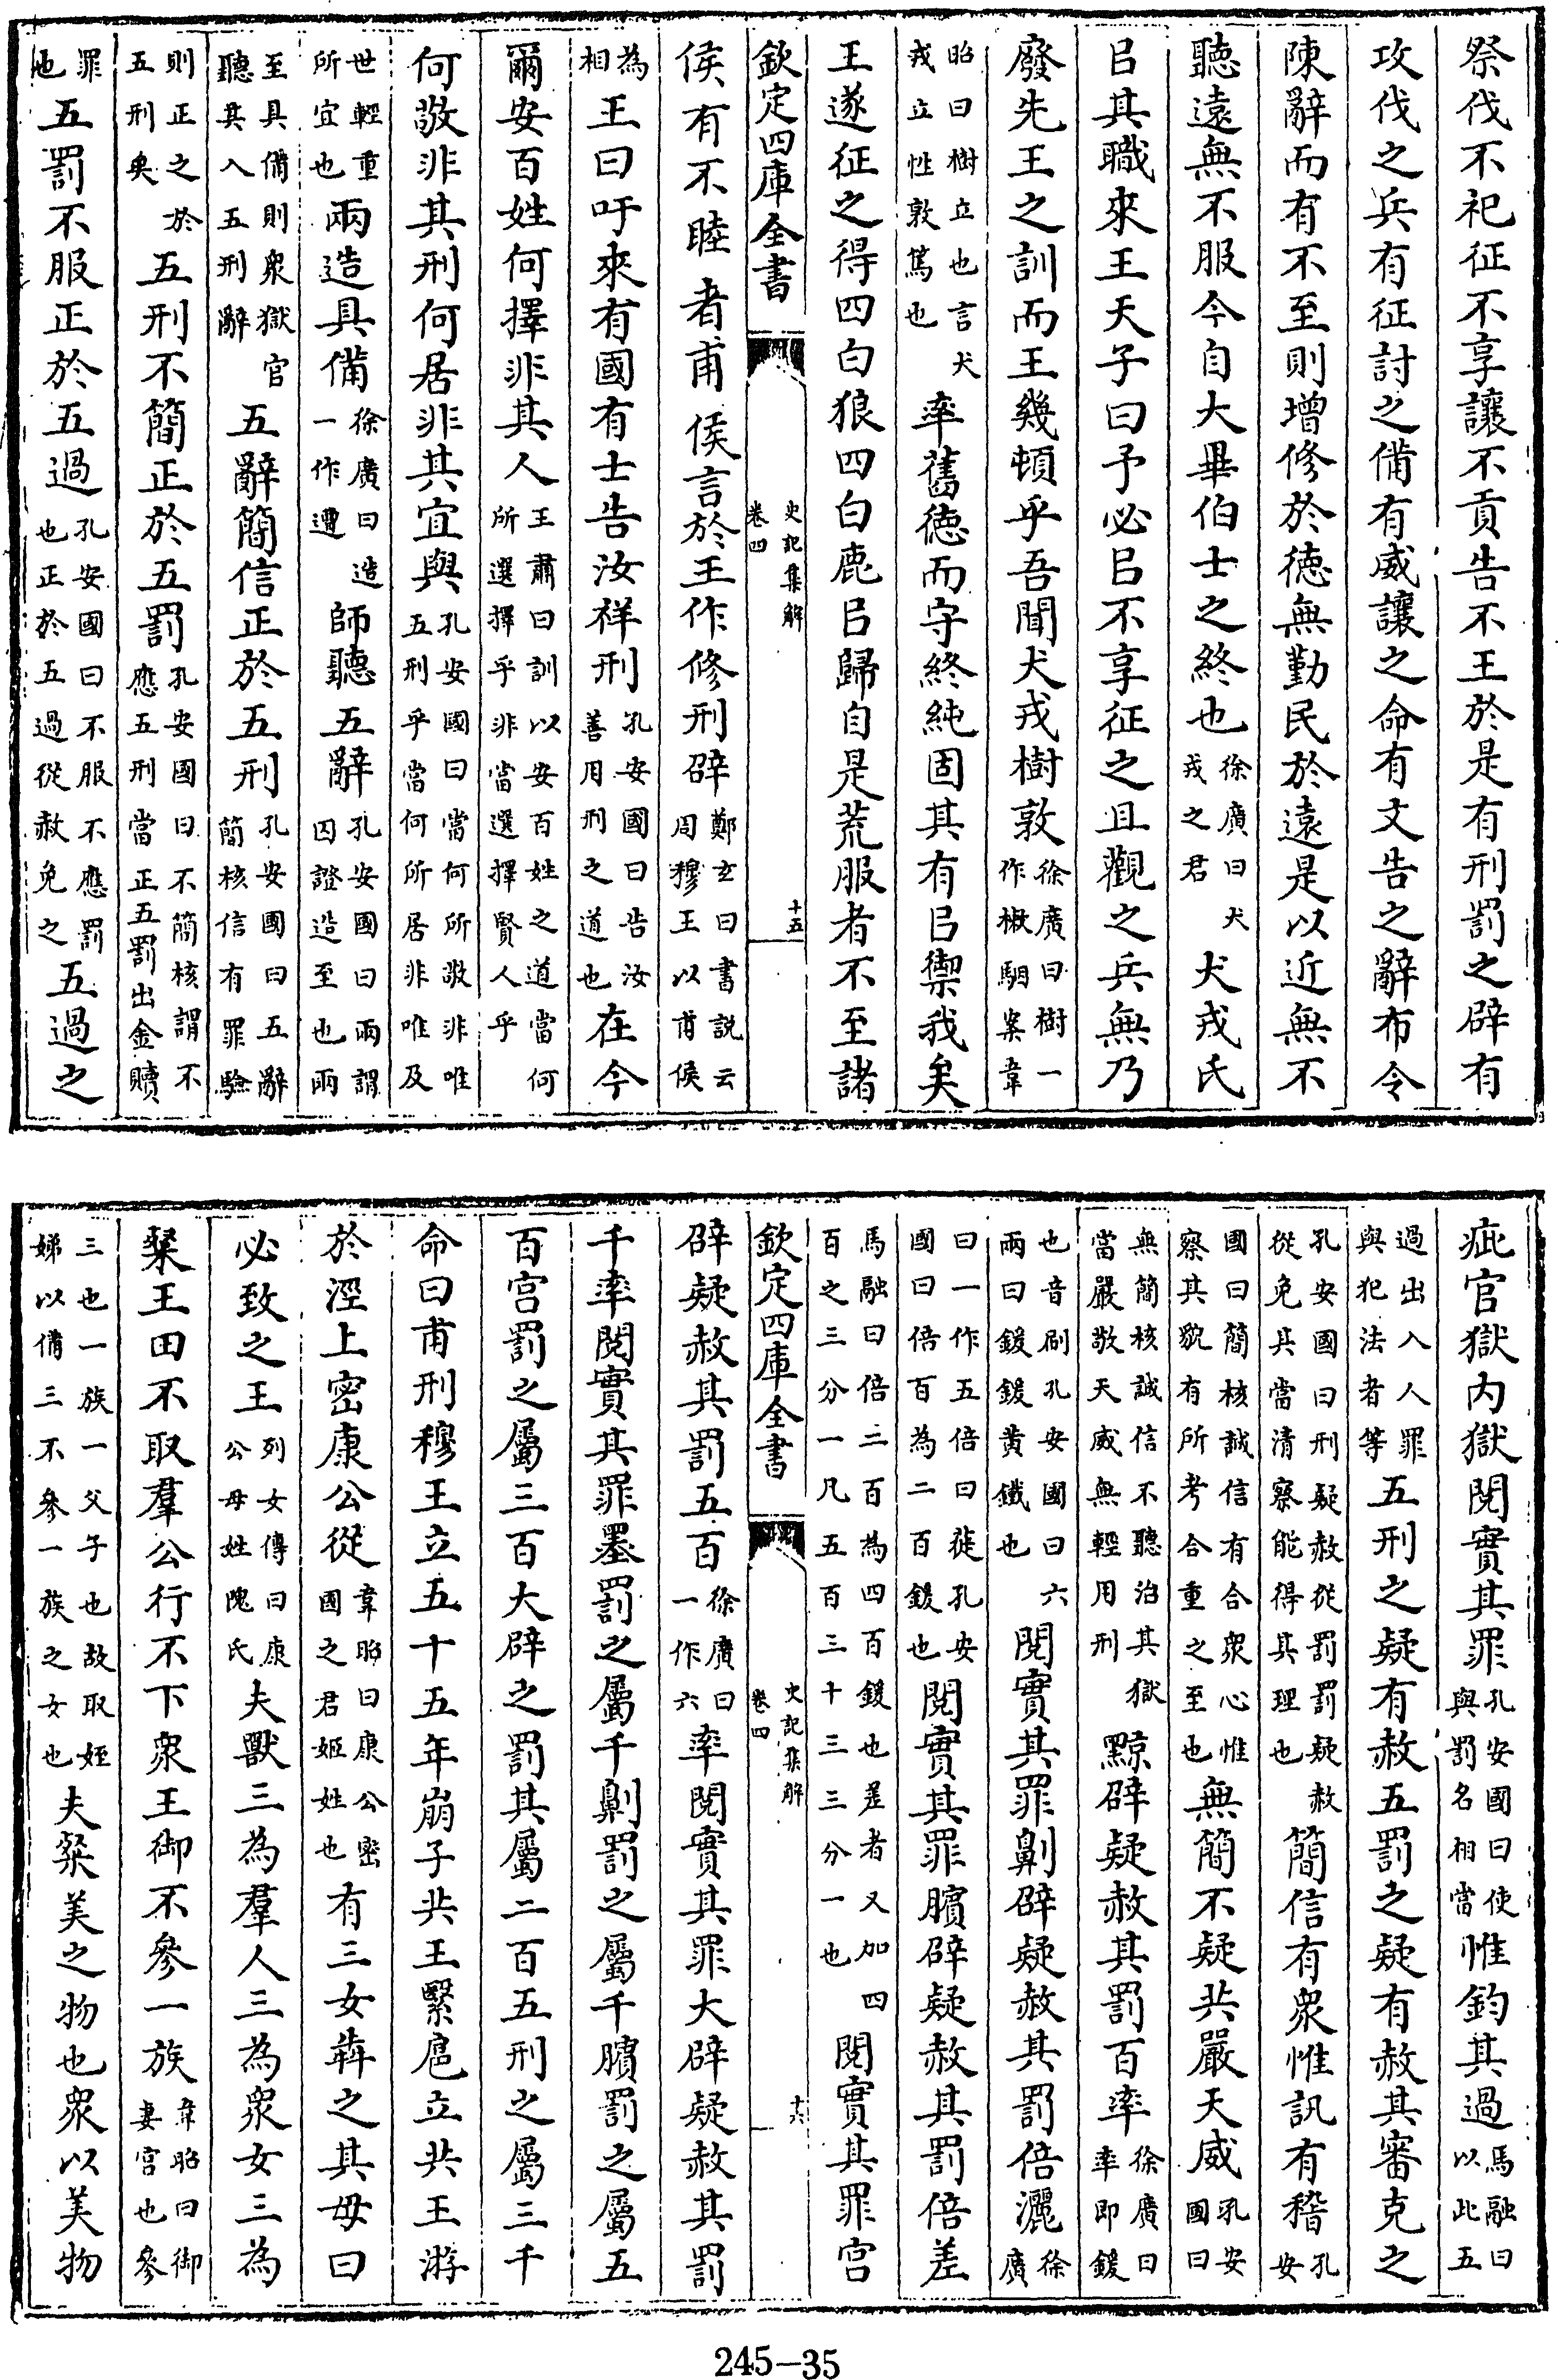 祭伐不祀征不享讓不貢告不王於是有刑罰之辟有
攻伐之兵有征討之備有威讓之命有文告之辭布令
陳辭而有不至則增修於德無勤民於遠是以近無不
聽遠無不服今自大畢伯士之終也徐廣曰犬戎之君犬戎氏
㠯其職來王天子曰予必㠯不享征之且觀之兵無乃
廢先王之訓而王幾頓乎吾聞犬戎樹敦徐廣曰樹一作樕駰案韋
昭曰樹立也言犬戎立性敦篤也率舊德而守終純固其有㠯禦我矣
王遂征之得四白狼四白鹿㠯歸自是荒服者不至諸
欽定四庫全書 史記集解 卷四 十五
侯有不睦者甫侯言於王作修刑辟鄭玄曰書説云周穆王以甫侯
為相王曰吁來有國有士告汝祥刑孔安國曰告汝善用刑之道也在今
爾安百姓何擇非其人王肅曰訓以安百姓之道當何所選擇乎非當選擇賢人乎
何敬非其刑何居非其宜與孔安國曰當何所敬非唯五刑乎當何所居非唯及
世輕重所宜也兩造具備徐廣曰造一作遭師聽五辭孔安國曰兩謂囚證造至也兩
至具備則衆獄官聽其入五刑辭五辭簡信正於五刑孔安國曰五辭簡核信有罪驗
則正之於五刑矣五刑不簡正於五罰孔安國曰不簡核謂不應五刑當正五罰出金贖
罪也五罰不服正於五過孔安國曰不服不應罰也正於五過從赦免之五過之
疵官獄内獄閱實其罪孔安國曰使與罰名相當惟鈞其過馬融曰以此五
過出入人罪與犯法者等五刑之疑有赦五罰之疑有赦其審克之
孔安國曰刑疑赦從罰罰疑赦從免其當清察能得其理也簡信有衆惟訊有稽孔安
國曰簡核誠信有合衆心惟察其貌有所考合重之至也無簡不疑共嚴天威孔安國曰
無簡核誠信不聽治其獄當嚴敬天威無輕用刑黥辟疑赦其罰百率徐廣曰率即鍰
也音刷孔安國曰六兩曰鍰鍰黄鐵也閱實其罪劓辟疑赦其罰倍灑徐廣
曰一作五倍曰蓰孔安國曰倍百為二百鍰也閱實其罪臏辟疑赦其罰倍差
馬融曰倍二百為四百鍰也差者又加四百之三分一凡五百三十三三分一也閱實其罪宫
欽定四庫全書 史記集解 卷四 十六
辟疑赦其罰五百徐廣曰一作六率閱實其罪大辟疑赦其罰
千率閱實其罪墨罰之屬千劓罰之屬千臏罰之屬五
百宫罰之屬三百大辟之罰其屬二百五刑之屬三千
命曰甫刑穆王立五十五年崩子共王繄扈立共王游
於涇上密康公從韋昭曰康公密國之君姬姓也有三女犇之其母曰
必致之王列女傳曰康公母姓隗氏夫獸三為羣人三為衆女三為
粲王田不取羣公行不下衆王御不參一族韋昭曰御妻宫也參
三也一族一父子也故取姪娣以備三不參一族之女也夫粲美之物也衆以美物
245-35